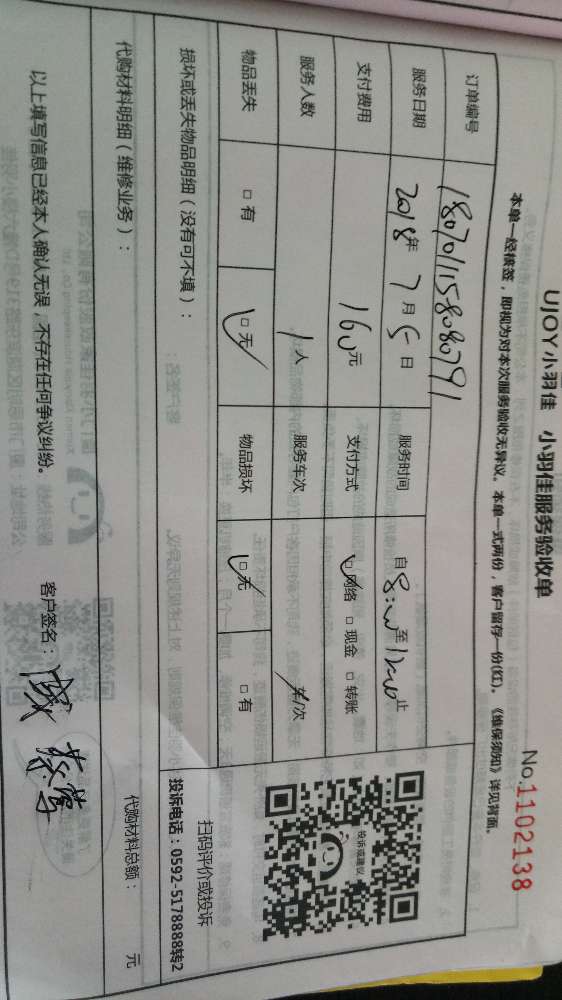 UJOY小羽佳 小羽佳服务验收单
No.1102138
本单一经核签，即视为对本次服务验收无异议。本单一式两份，客户留存一份(红)。《维保须知》详见背面。
订单编号 180701158080791
服务日期 2018年7月5日 服务时间 自8:00至12:00止
支付费用 160元 支付方式 ☑网络 □现金 □转账
服务人数 1人 服务车次 车/次
物品丢失 □有 ☑无 物品损坏 ☑无 □有
投诉或建议
扫码评价或投诉
投诉电话：0592-5178888转2
损坏或丢失物品明细（没有可不填）：
代购材料明细（维修业务）： 代购材料总额： 元
以上填写信息已经本人确认无误，不存在任何争议纠纷。 客户签名：